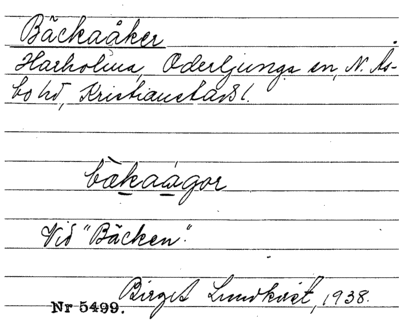 Bäckaåker
Harholma, Oderljunga sn, N. Ås-
bo hd, Kristianstads l.
bækaågor
Vid "Bäcken".
Birget Lundkvist, 1938.
Nr 5499.